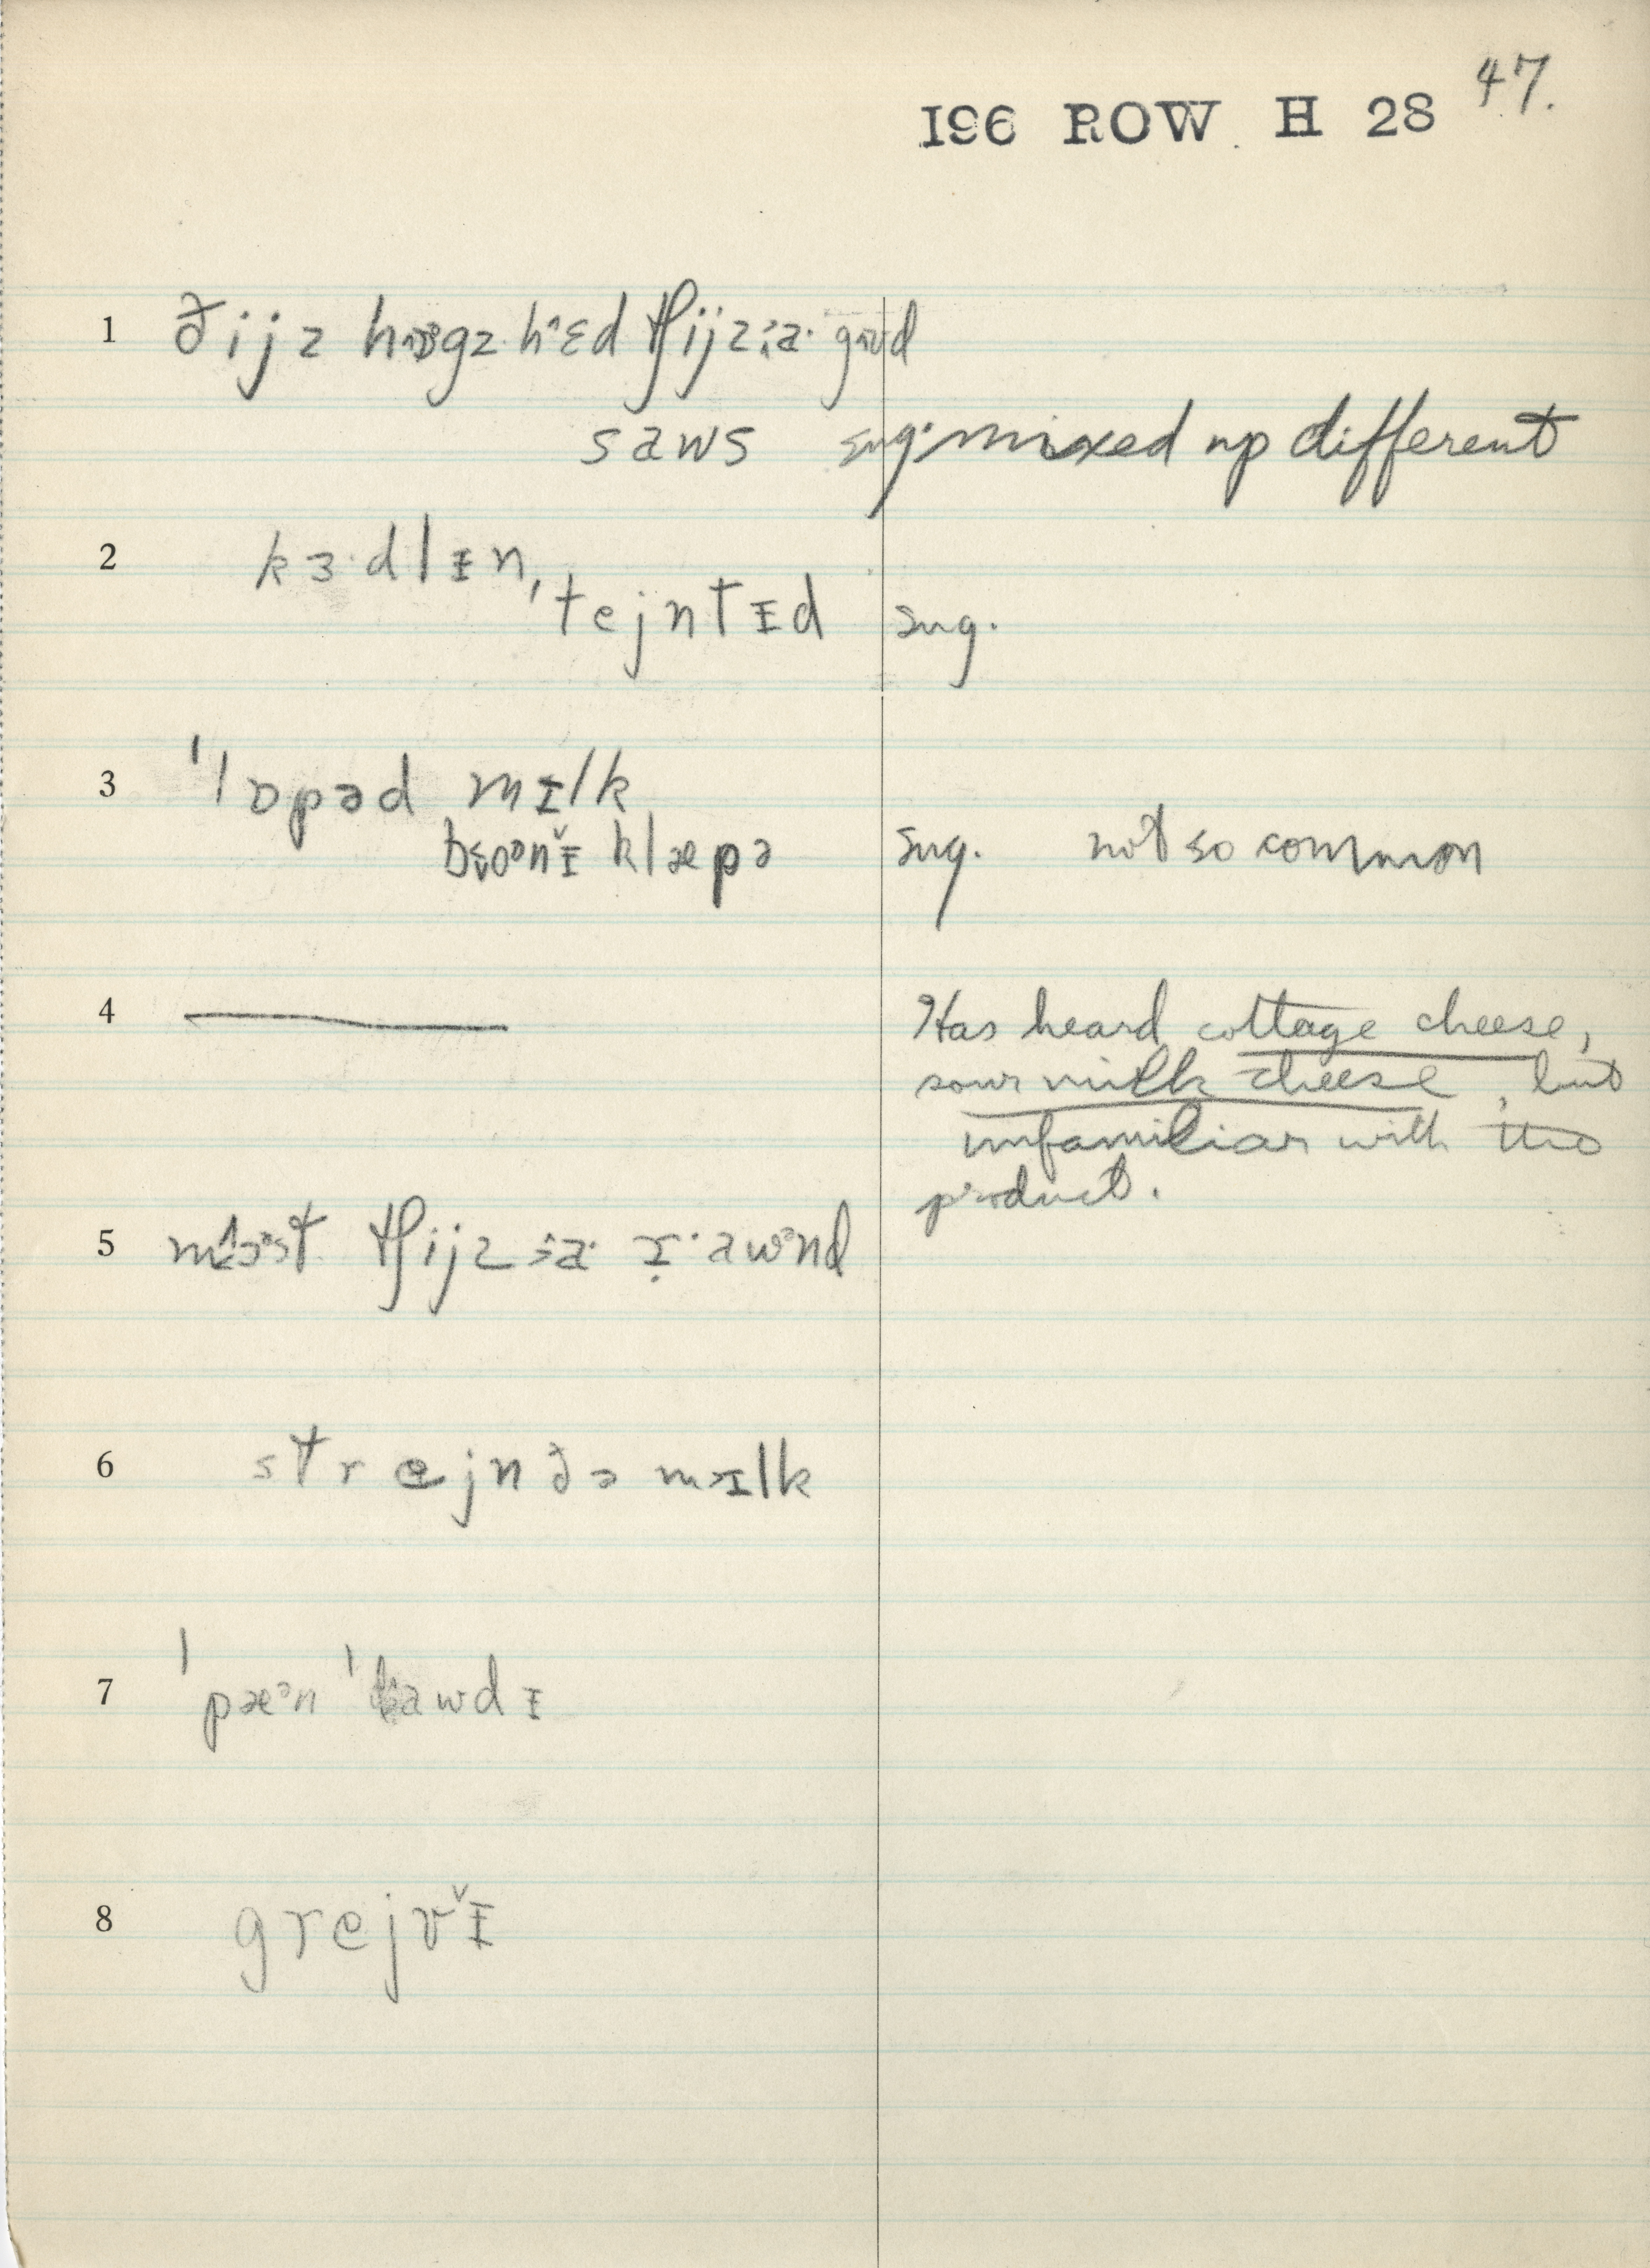 47.
196 ROW H 28
1 ðijz hɒgz hɛd tʃijz:a· gʊd
saws sug. mixed up different
2 kɜ·dlɪn,
'tejntɪd sug.
3 'lɒpəd mɪlk
klæpə sug. not so common
4 — Has heard cottage cheese,
sour milk cheese, but
unfamiliar with the
product.
5 tʃijz
6 strejn ðə mɪlk
7 'pæᵊn 'dawdɪ
8 grejvɪ̌